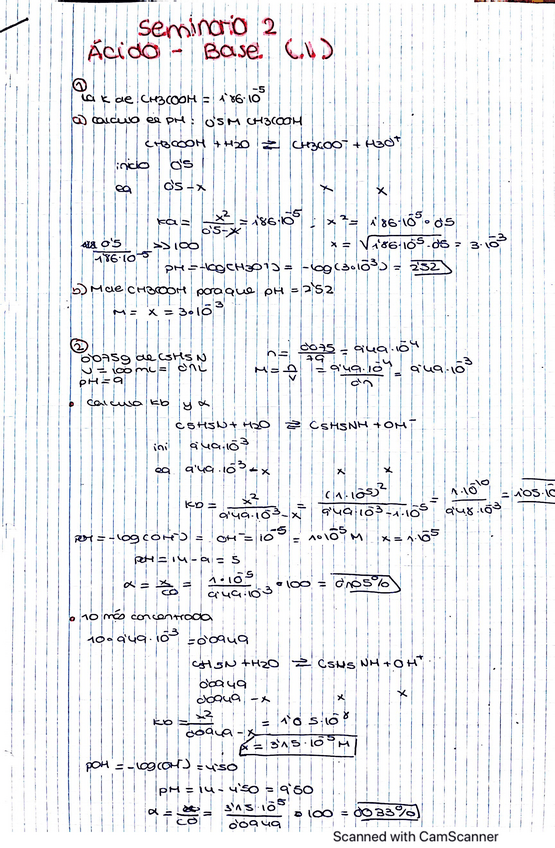 Seminario 2
Ácido - Base (II)
①
la K de CH3COOH = 1'86·10⁻⁵
a) calculo el pH: 0'5 M CH3COOH
CH3COOH + H2O ⇌ CH3COO⁻ + H3O⁺
inicio 0'5
eq 0'5-x x x
Ka = x²/0'5-x = 1'86·10⁻⁵ ; x² = 1'86·10⁻⁵·0'5
0'5/1'86·10⁻⁵ >> 100 x = √1'86·10⁻⁵·0'5 = 3·10⁻³
pH = -log(H3O⁺) = -log(3·10⁻³) = 2'52
b) M de CH3COOH para que pH = 2'52
M = x = 3·10⁻³
②
0'075g de C5H5N n = 0'075/79 = 9'49·10⁻⁴
V = 100 mL = 0'1L M = n/V = 9'49·10⁻⁴/0'1 = 9'49·10⁻³
pH = 9
• calcula Kb y α
C5H5N + H2O ⇌ C5H5NH + OH⁻
ini 9'49·10⁻³
eq 9'49·10⁻³-x x x
Kb = x²/9'49·10⁻³-x = (1·10⁻⁵)²/9'49·10⁻³-1·10⁻⁵ = 1·10⁻¹⁰/9'48·10⁻³ = 1'05·10
pOH = -log(OH⁻) = OH⁻ = 10⁻⁵ = 1·10⁻⁵ M x = 1·10⁻⁵
pOH = 14-9 = 5
α = x/C0 = 1·10⁻⁵/9'49·10⁻³ · 100 = 0'105%
• 10 más concentrada
10·9'49·10⁻³ = 0'0949
C5H5N + H2O ⇌ C5H5NH + OH⁺
0'0949
0'0949-x x x
Kb = x²/0'0949-x = 1'05·10⁻⁸
x = 3'15·10⁻⁵ M
pOH = -log(OH⁻) = 4'50
pH = 14-4'50 = 9'50
α = x/C0 = 3'15·10⁻⁵/0'0949 · 100 = 0'033%
Scanned with CamScanner